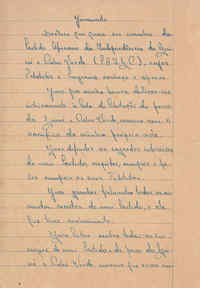 Juramento
Declaro que quero ser membro do
Partido Africano da Independência da Gui-
né e Cabo Verde (P.A.I.G.C.), cujos
Estatutos e Programa conheço e aprovo.
Juro por minha honra dedicar-me
inteiramente à luta de libertação do povo
da Guiné e Cabo Verde, mesmo com o
sacrifício da minha própria vida.
Juro defender os sagrados interesses
do meu Partido, respeitar, cumprir e fa-
zer cumprir os seus Estatutos.
Juro guardar fielmente todos os as-
suntos secretos do meu Partido, e de
que tiver conhecimento.
Juro lutar contra todos os ini-
migos do meu Partido e do povo da Gui-
né e Cabo Verde, mesmo que